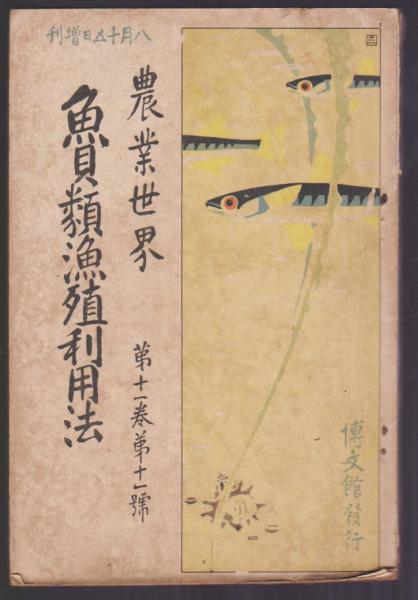 八月十五日增刊
農業世界
第十一卷第十一號
魚貝類漁殖利用法
博文館發行